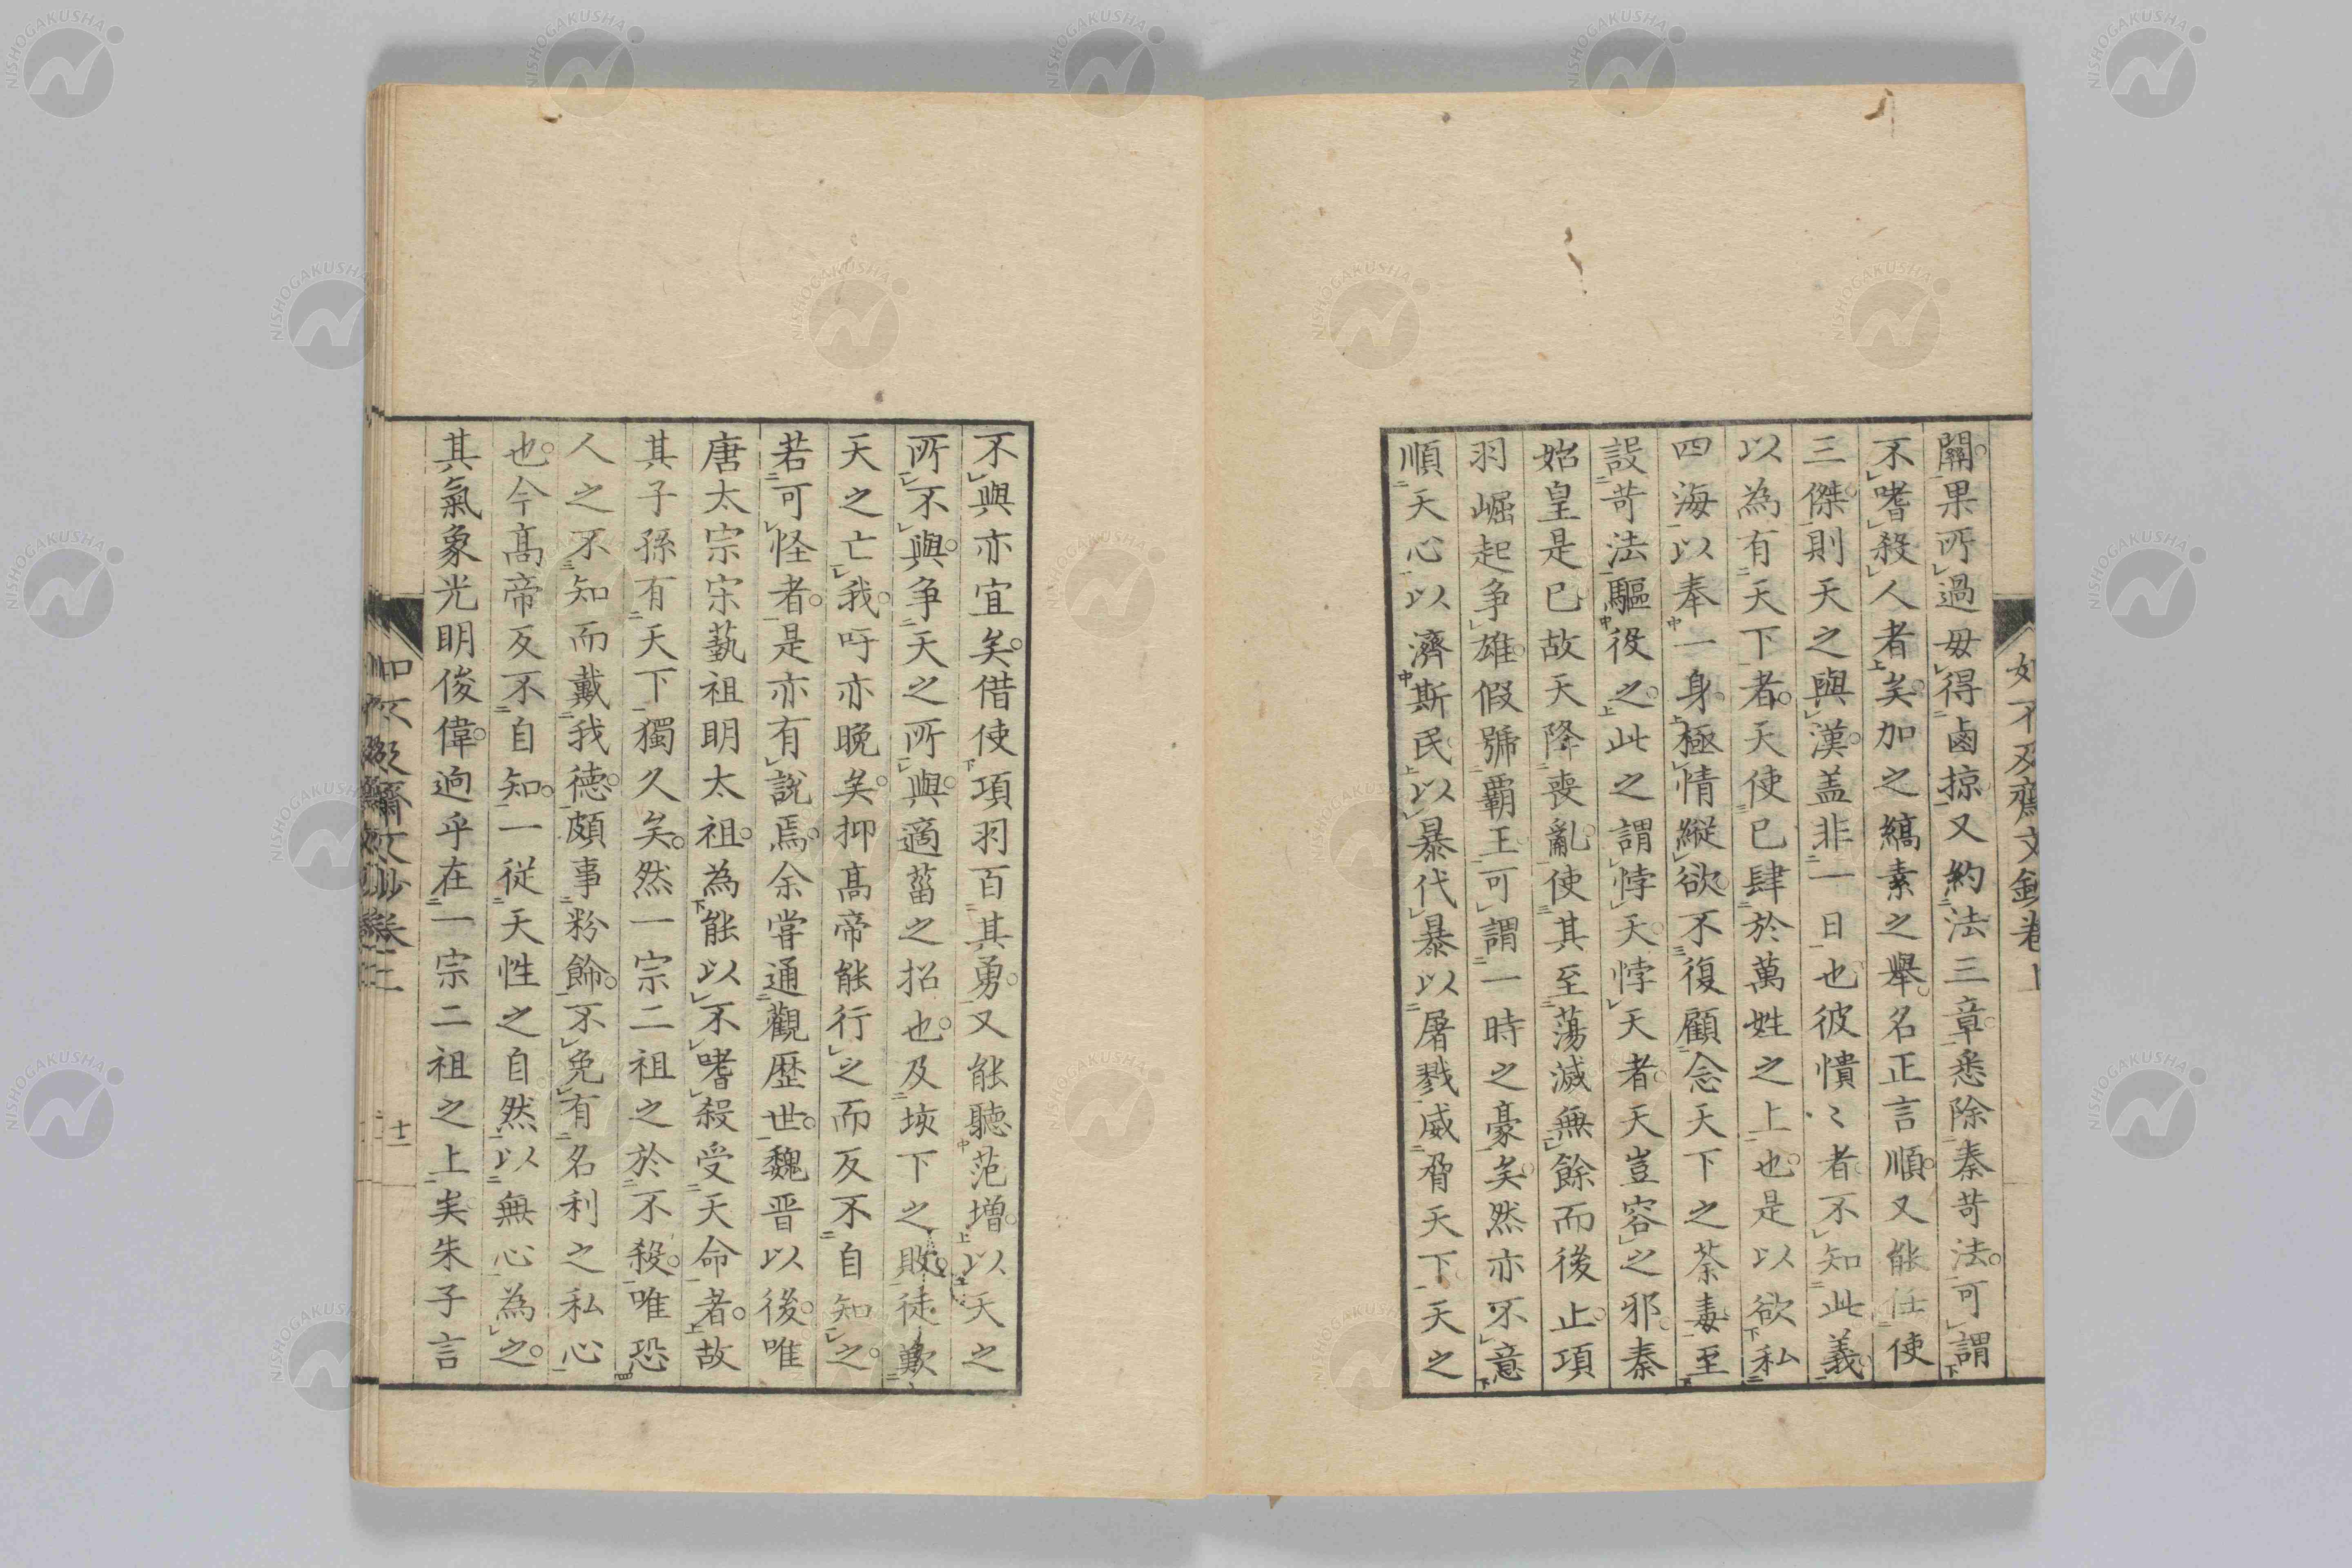 關果所過毋得鹵掠又約法三章悉除秦苛法可謂
不嗜殺人者矣加之縞素之舉名正言順又能任使
三傑則天之與漢盖非一日也彼憒〻者不知此義
以為有天下者天使已肆於萬姓之上也是以欲私
四海以奉一身極情縱欲不復顧念天下之荼毒至
設苛法驅役之此之謂悖天悖天者天豈容之邪秦
始皇是已故天降喪亂使其至蕩滅無餘而後止項
羽崛起争雄假號霸王可謂一時之豪矣然亦不意
順天心以濟斯民以暴代暴以屠戮威脅天下天之
不與亦宜矣借使項羽百其勇又能聽范增以天之
所不與争天之所與適菑之招也及垓下之敗徒歎
天之亡我吁亦晚矣抑髙帝能行之而反不自知之
若可怪者是亦有說焉余嘗通觀歷世魏晋以後唯
唐太宗宋藝祖明太祖為能以不嗜殺受天命者故
其子孫有天下獨久矣然一宗二祖之於不殺唯恐
人之不知而戴我德頗事粉餙不免有名利之私心
也今髙帝反不自知一從天性之自然以無心為之
其氣象光明俊偉逈乎在一宗二祖之上矣朱子言
如不及齋文鈔卷上
十二
NISHOGAKUSHA